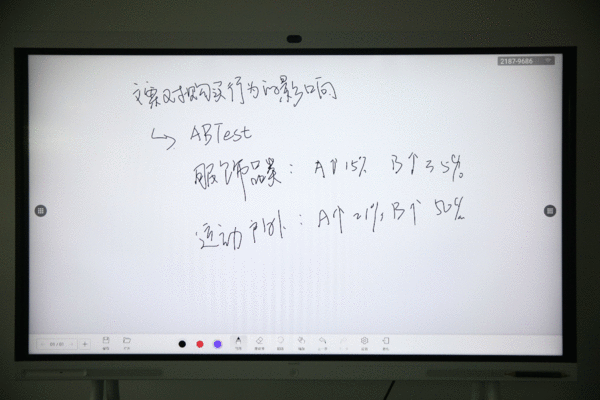 2187-9686
文案对购买行为的影响
↳ ABTest
服饰品类：A↑15% B↑35%
运动户外：A↑21% B↑50%